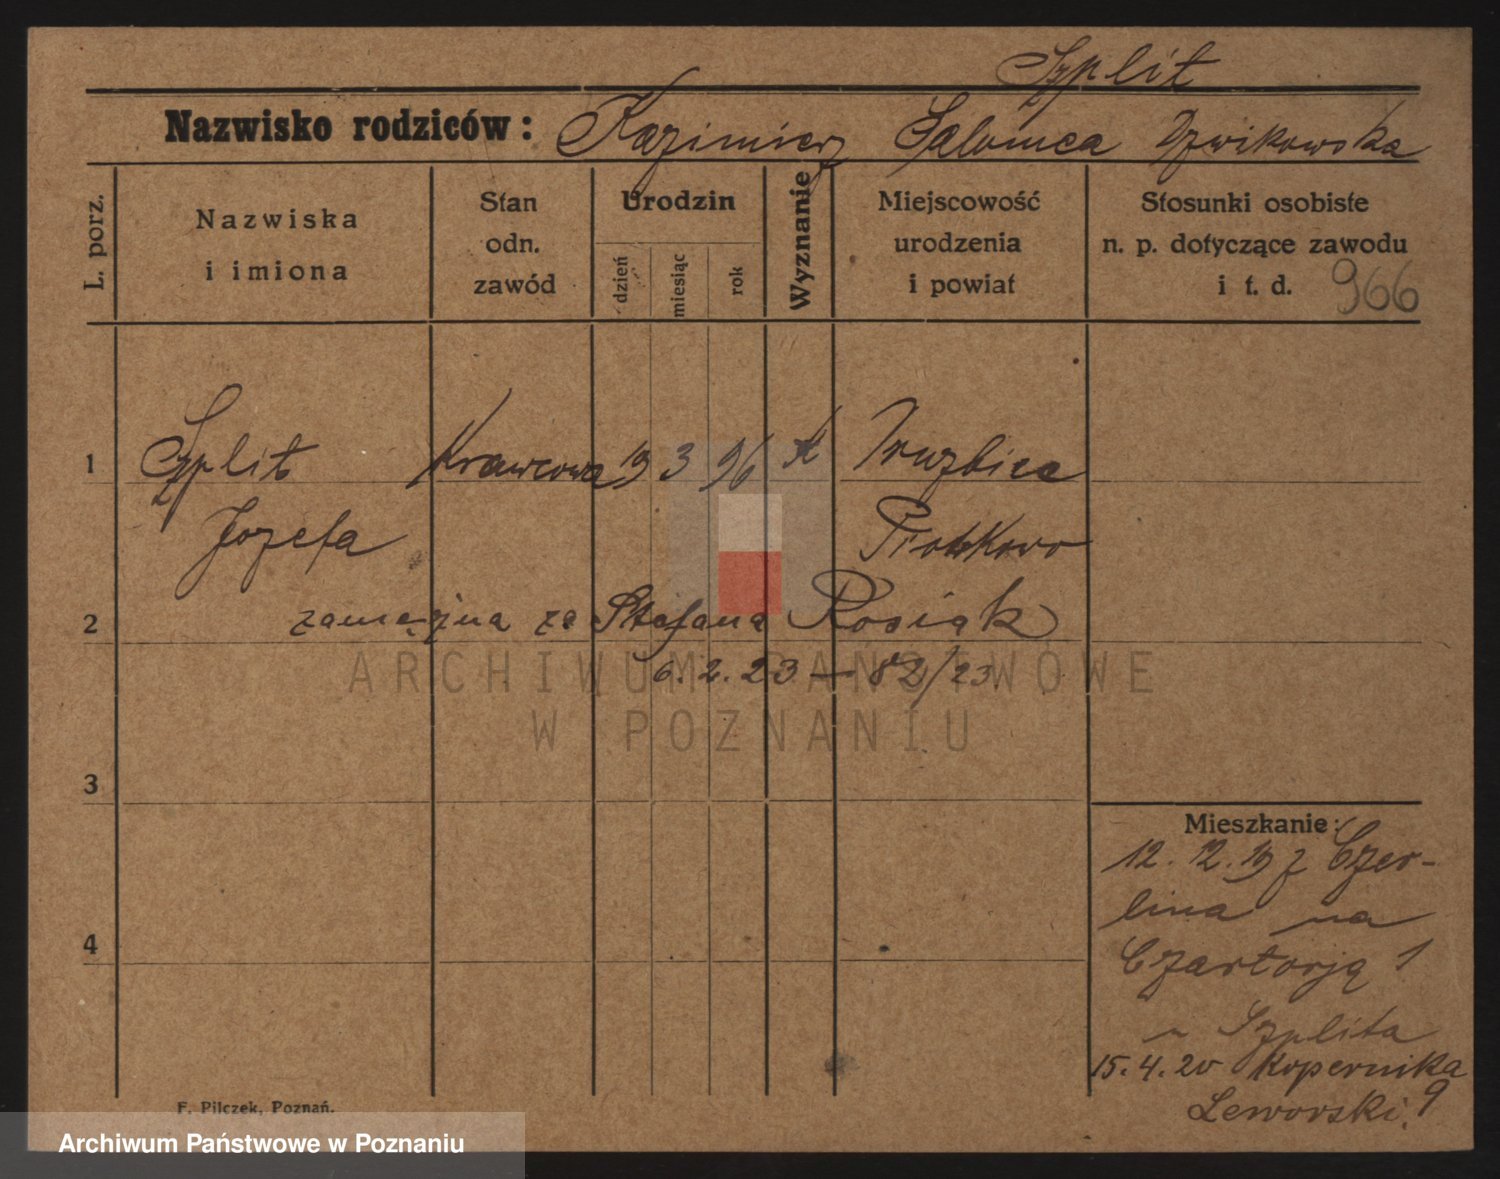 Szplit
Nazwisko rodziców: Kazimierz Salomea Dzwikowska
L. porz.
Nazwiska
i imiona
Stan
odn.
zawód
Urodzin
dzień
miesiąc
rok
Wyznanie
Miejscowość
urodzenia
i powiat
Stosunki osobiste
n. p. dotyczące zawodu
i t. d.
966
1 Szplit Krawcowa 19 3 96 k
Józefa Piotrkowo
2 zamężna za Stefana Rosiak
6. 2. 23 — 82/23
3
4
Mieszkanie:
12. 12. 19 z Czer-
lina na
Czartorją 1
u Szplita
15. 4. 20 Kopernika
9
F. Pilczek, Poznań.
ARCHIWUM PAŃSTWOWE
W POZNANIU
Archiwum Państwowe w Poznaniu